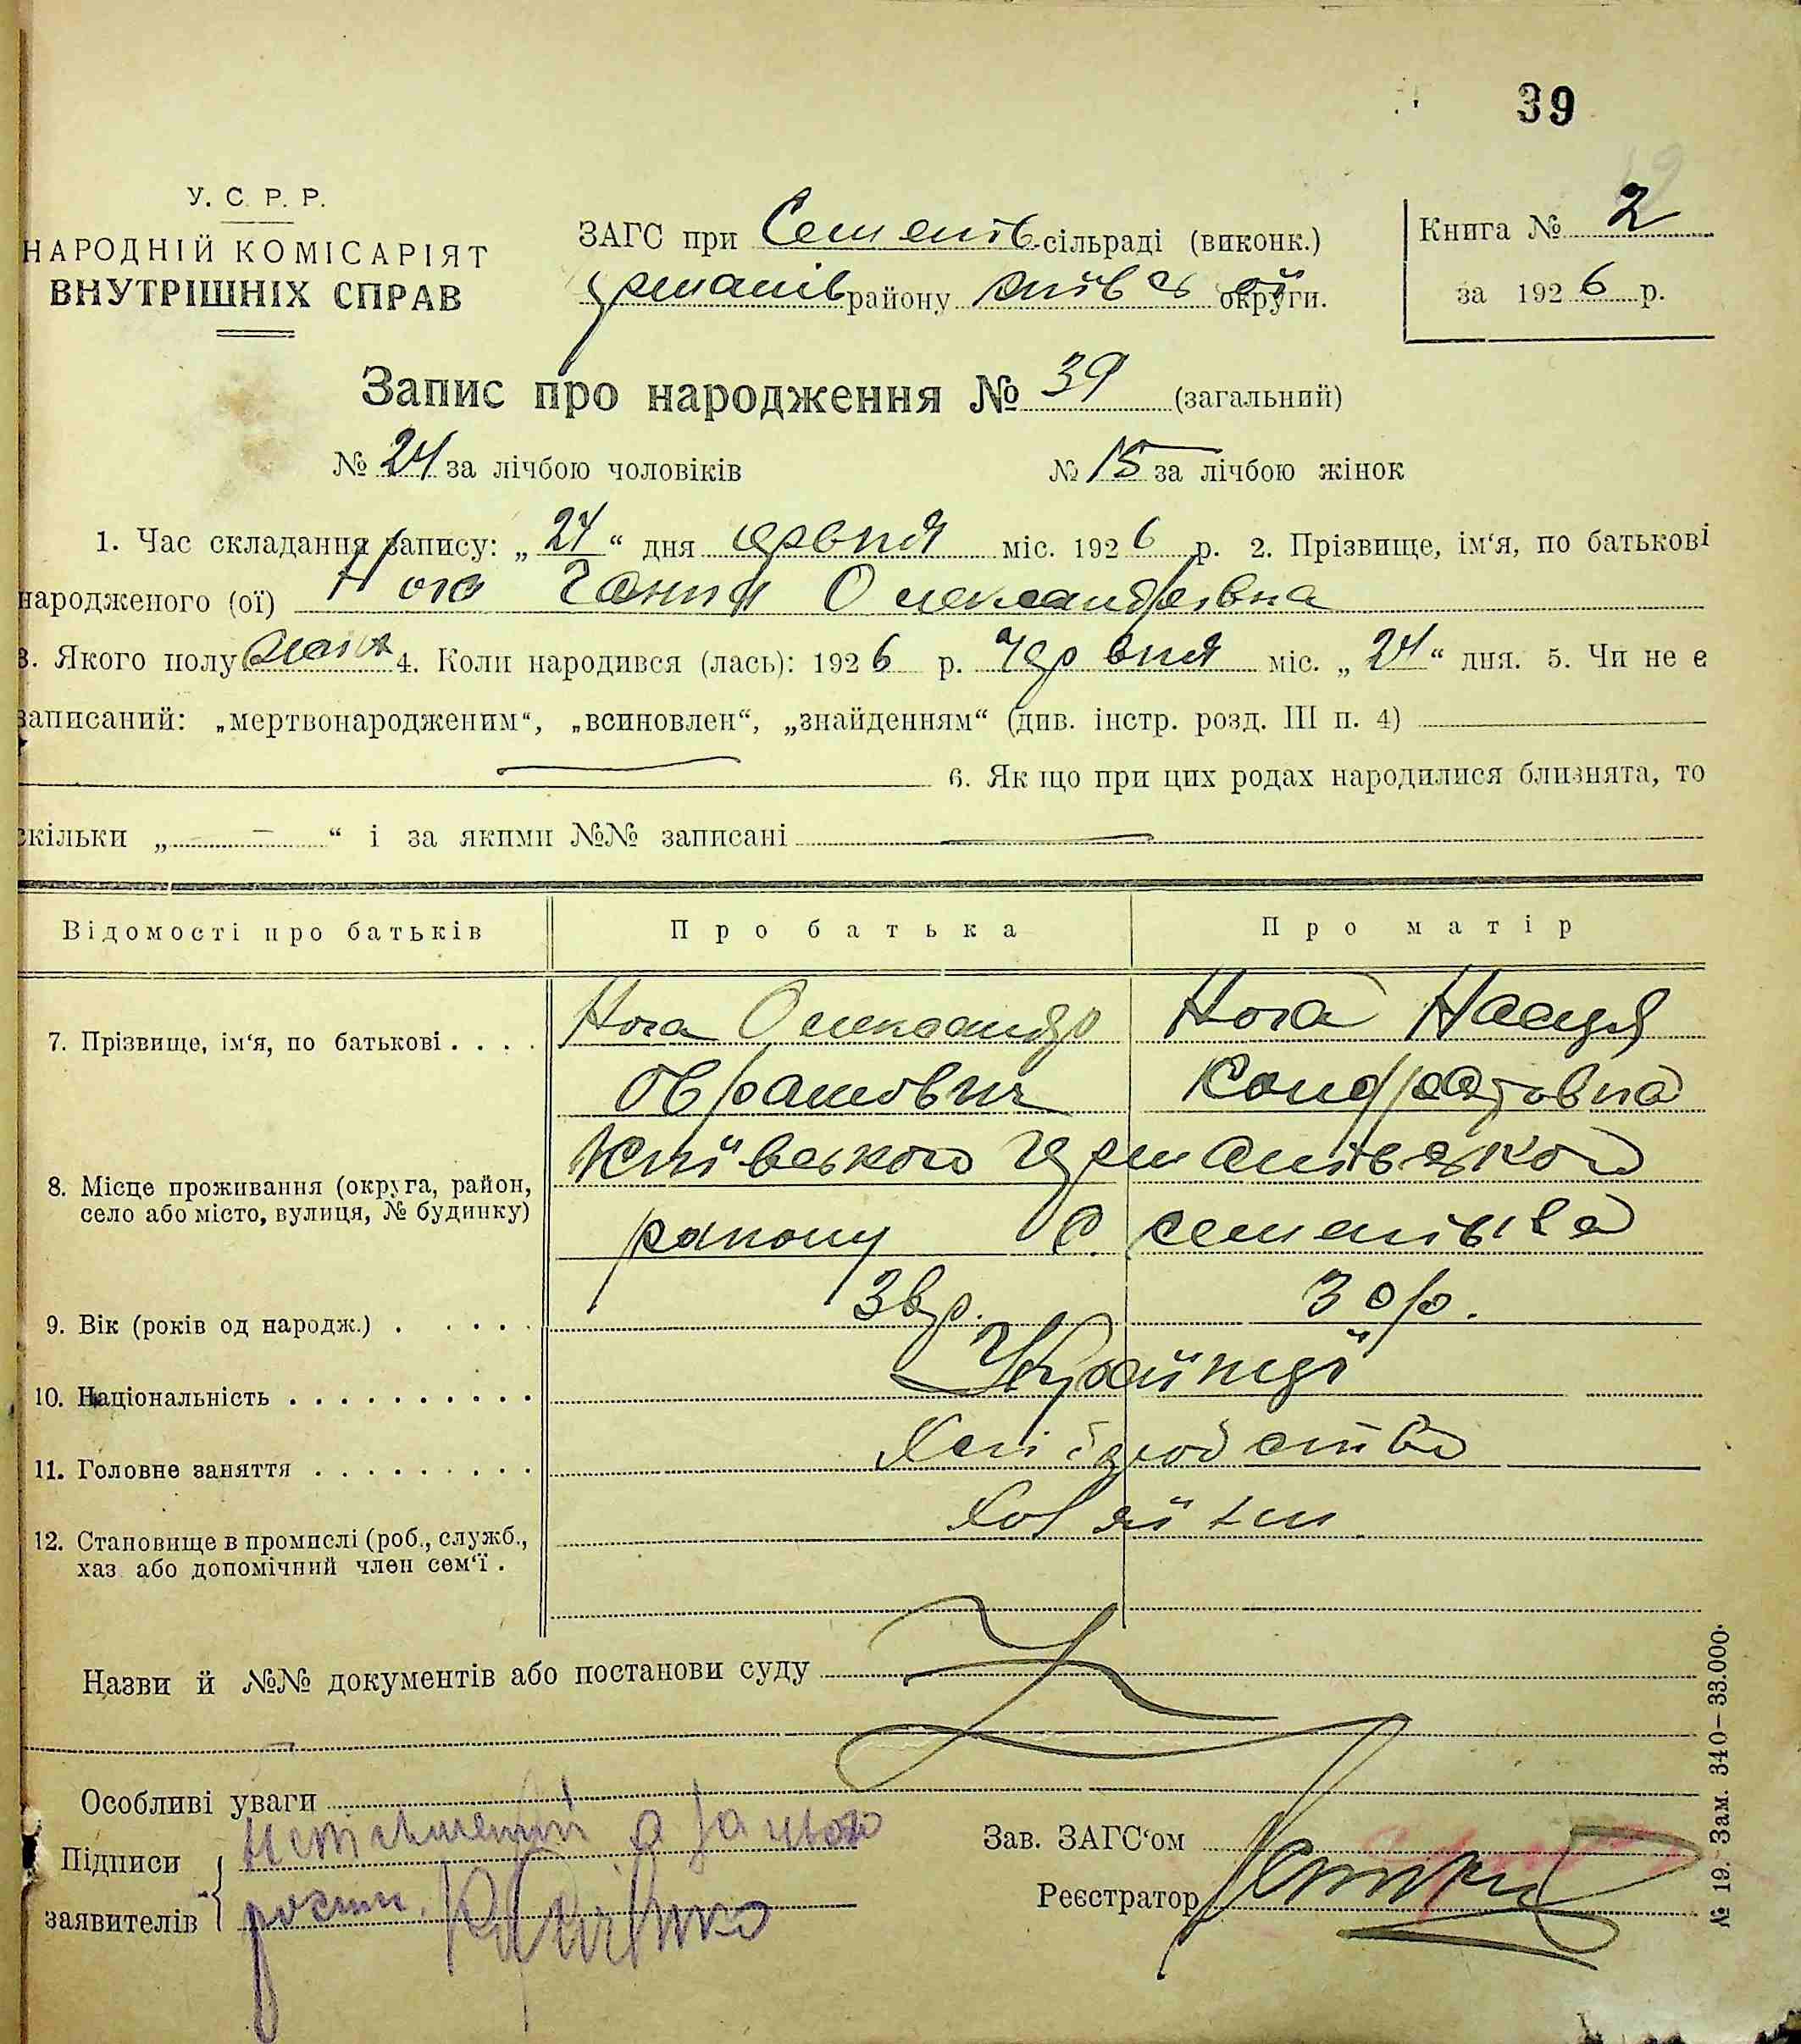 39
У. С. Р. Р.
НАРОДНІЙ КОМІСАРІЯТ
ВНУТРІШНІХ СПРАВ
ЗАГС при Семенів. сільраді (виконк.)
району київської округи.
Книга № 2
за 1926 р.
Запис про народження № 39 (загальний)
№ 24 за лічбою чоловіків № 15 за лічбою жінок
1. Час складання запису: „24“ дня червня міс. 1926 р. 2. Прізвище, ім‘я, по батькові
народженого (ої) Нога Ганна Олександрівна
3. Якого полу 4. Коли народився (лась): 1926 р. Червня міс. „24“ дня. 5. Чи не є
записаний: „мертвонародженим“, „всиновлен“, „знайденням“ (див. інстр. розд. III п. 4)
6. Як що при цих родах народилися близнята, то
скільки „ — “ і за якими №№ записані —
Відомості про батьків Про батька Про матір
7. Прізвище, ім‘я, по батькові . . . . Нога Олександр Нога Настя
Кондратовна
8. Місце проживання (округа, район, Київського
село або місто, вулиця, № будинку) району с. семенівка
9. Вік (років од народж.) . . . . . 30 р.
10. Національність . . . . . . . . . . Українці
11. Головне заняття . . . . . . . . . Хліборобство
12. Становище в промислі (роб., служб.,
хаз або допомічний член сем‘ї .
Назви й №№ документів або постанови суду
Особливі уваги
Підписи
заявителів
Зав. ЗАГС‘ом
Реєстратор
№ 19. Зам. 340—33.000.